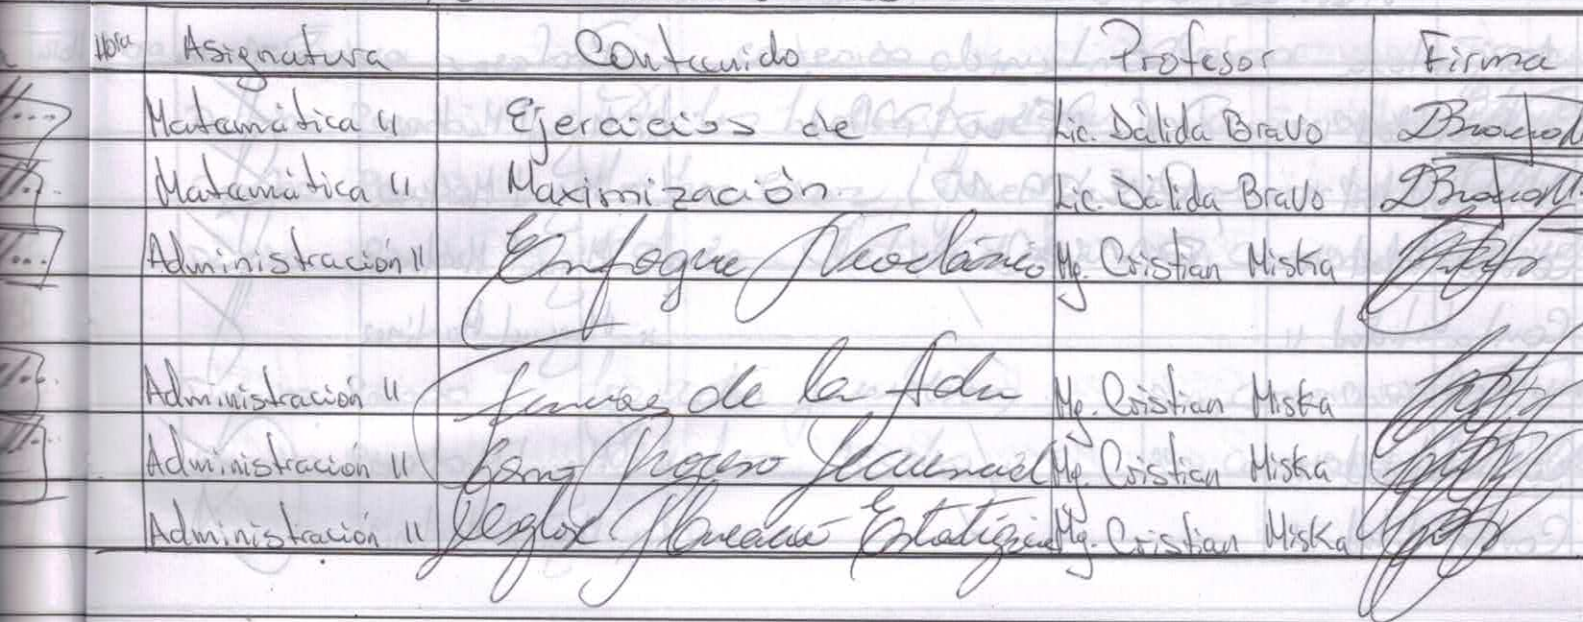 Hora Asignatura Contenido Profesor Firma
Matemática II Ejercicios de Lic. Dálida Bravo
Matemática II Maximización Lic. Dálida Bravo
Administración II Enfoque Neoclásico Mg. Cristian Miska
Administración II de la Adm Mg. Cristian Miska
Administración II Como Proceso Secuencial Mg. Cristian Miska
Administración II Estratégica Mg. Cristian Miska